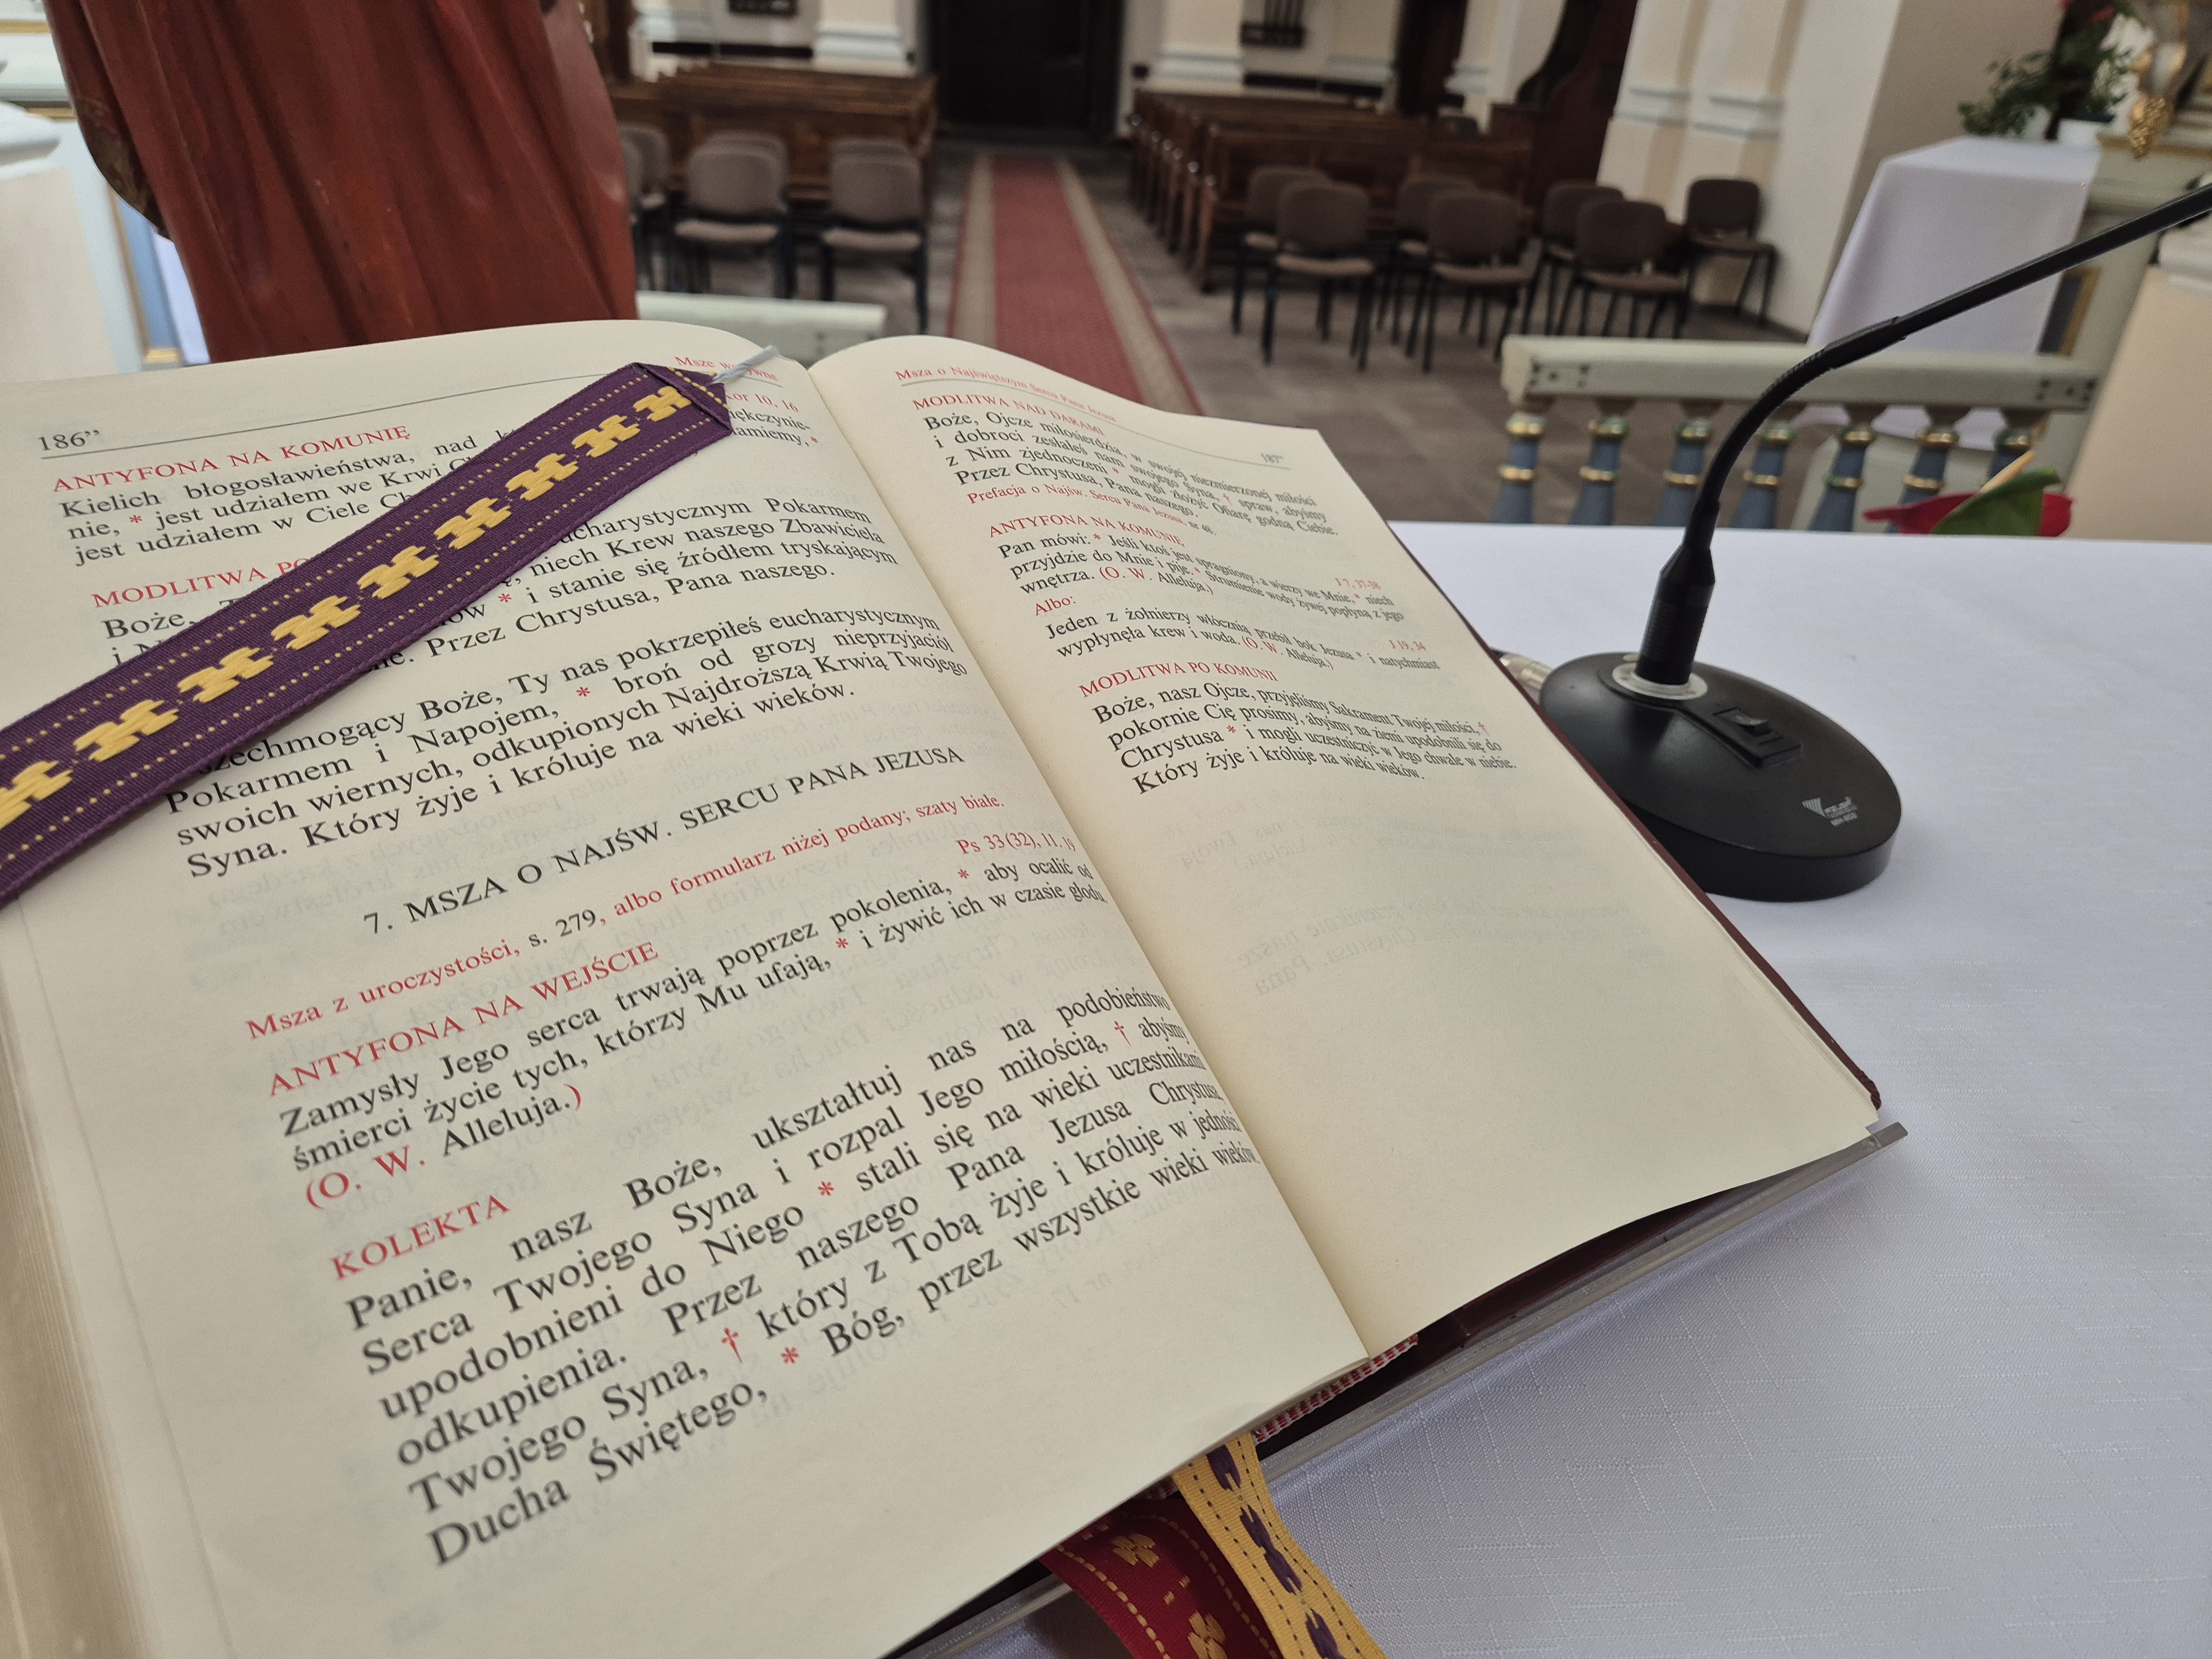 186”
Msze
ANTYFONA NA KOMUNIĘ
10, 16
Kielich błogosławieństwa, nad
nie, * jest udziałem we Krwi
łamiemy, *
jest udziałem w Ciele
MODLITWA
Boże,
eucharystycznym Pokarmem
niech Krew naszego Zbawiciela
* i stanie się źródłem tryskającym
Przez Chrystusa, Pana naszego.
Boże, Ty nas pokrzepiłeś eucharystycznym
Pokarmem i Napojem, * broń od grozy nieprzyjaciół
swoich wiernych, odkupionych Najdroższą Krwią Twojego
Syna. Który żyje i króluje na wieki wieków.
7. MSZA O NAJŚW. SERCU PANA JEZUSA
Msza z uroczystości, s. 279, albo formularz niżej podany; szaty białe.
ANTYFONA NA WEJŚCIE
Ps 33(32), 11. 19
Zamysły Jego serca trwają poprzez pokolenia, * aby ocalić od
śmierci życie tych, którzy Mu ufają, * i żywić ich w czasie głodu.
(O. W. Alleluja.)
KOLEKTA
Panie, nasz Boże, ukształtuj nas na podobieństwo
Serca Twojego Syna i rozpal Jego miłością, † abyśmy
upodobnieni do Niego * stali się na wieki uczestnikami
odkupienia. Przez naszego Pana Jezusa Chrystusa,
Twojego Syna, † który z Tobą żyje i króluje w jedności
Ducha Świętego, * Bóg, przez wszystkie wieki wieków.
Msza o Najświętszym Sercu Pana Jezusa
187”
MODLITWA NAD DARAMI
Boże, Ojcze miłosierdzia, w swojej niezmierzonej miłości
i dobroci zesłałeś nam swojego Syna, † spraw, abyśmy
z Nim zjednoczeni * mogli złożyć Ofiarę godną Ciebie.
Przez Chrystusa, Pana naszego.
Prefacja o Najśw. Sercu Pana Jezusa, nr
ANTYFONA NA KOMUNIĘ
J 7, 37-38
Pan mówi: * Jeśli ktoś jest spragniony, a wierzy we Mnie, * niech
przyjdzie do Mnie i pije. * Strumienie wody żywej popłyną z jego
wnętrza. (O. W. Alleluja.)
Albo:
J 19, 34
Jeden z żołnierzy włócznią przebił bok Jezusa * i natychmiast
wypłynęła krew i woda. (O. W. Alleluja.)
MODLITWA PO KOMUNII
Boże, nasz Ojcze, przyjęliśmy Sakrament Twojej miłości, †
pokornie Cię prosimy, abyśmy na ziemi upodobnili się do
Chrystusa * i mogli uczestniczyć w Jego chwale w niebie.
Który żyje i króluje na wieki wieków.